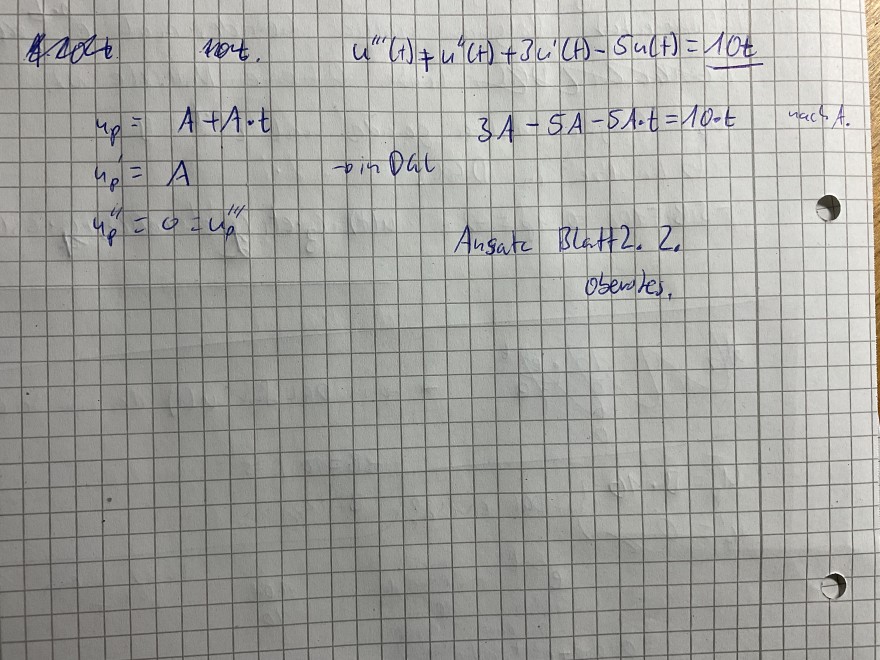 10t. u'''(t) + u''(t) + 3u'(t) - 5u(t) = 10t
u_p = A + A·t 3A - 5A - 5A·t = 10·t nach A.
u_p' = A → in DGL
u_p'' = 0 = u_p'''
Ansatz Blatt 2. 2.
oberstes.